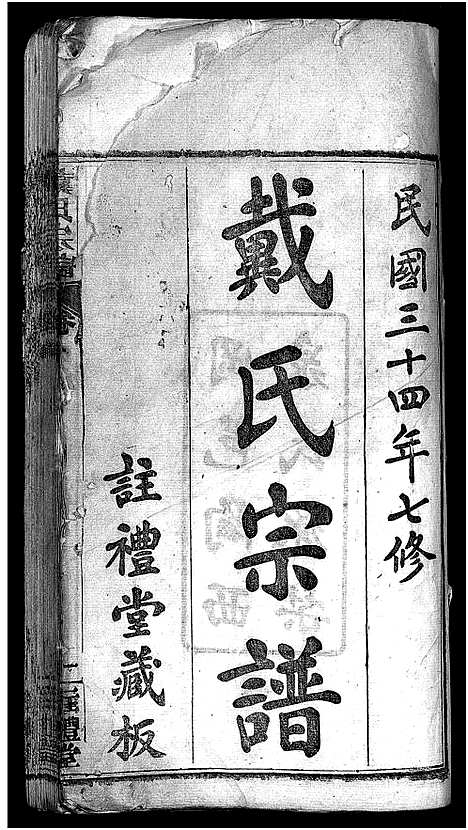 民國三十四年七修
戴氏宗譜
註禮堂藏板